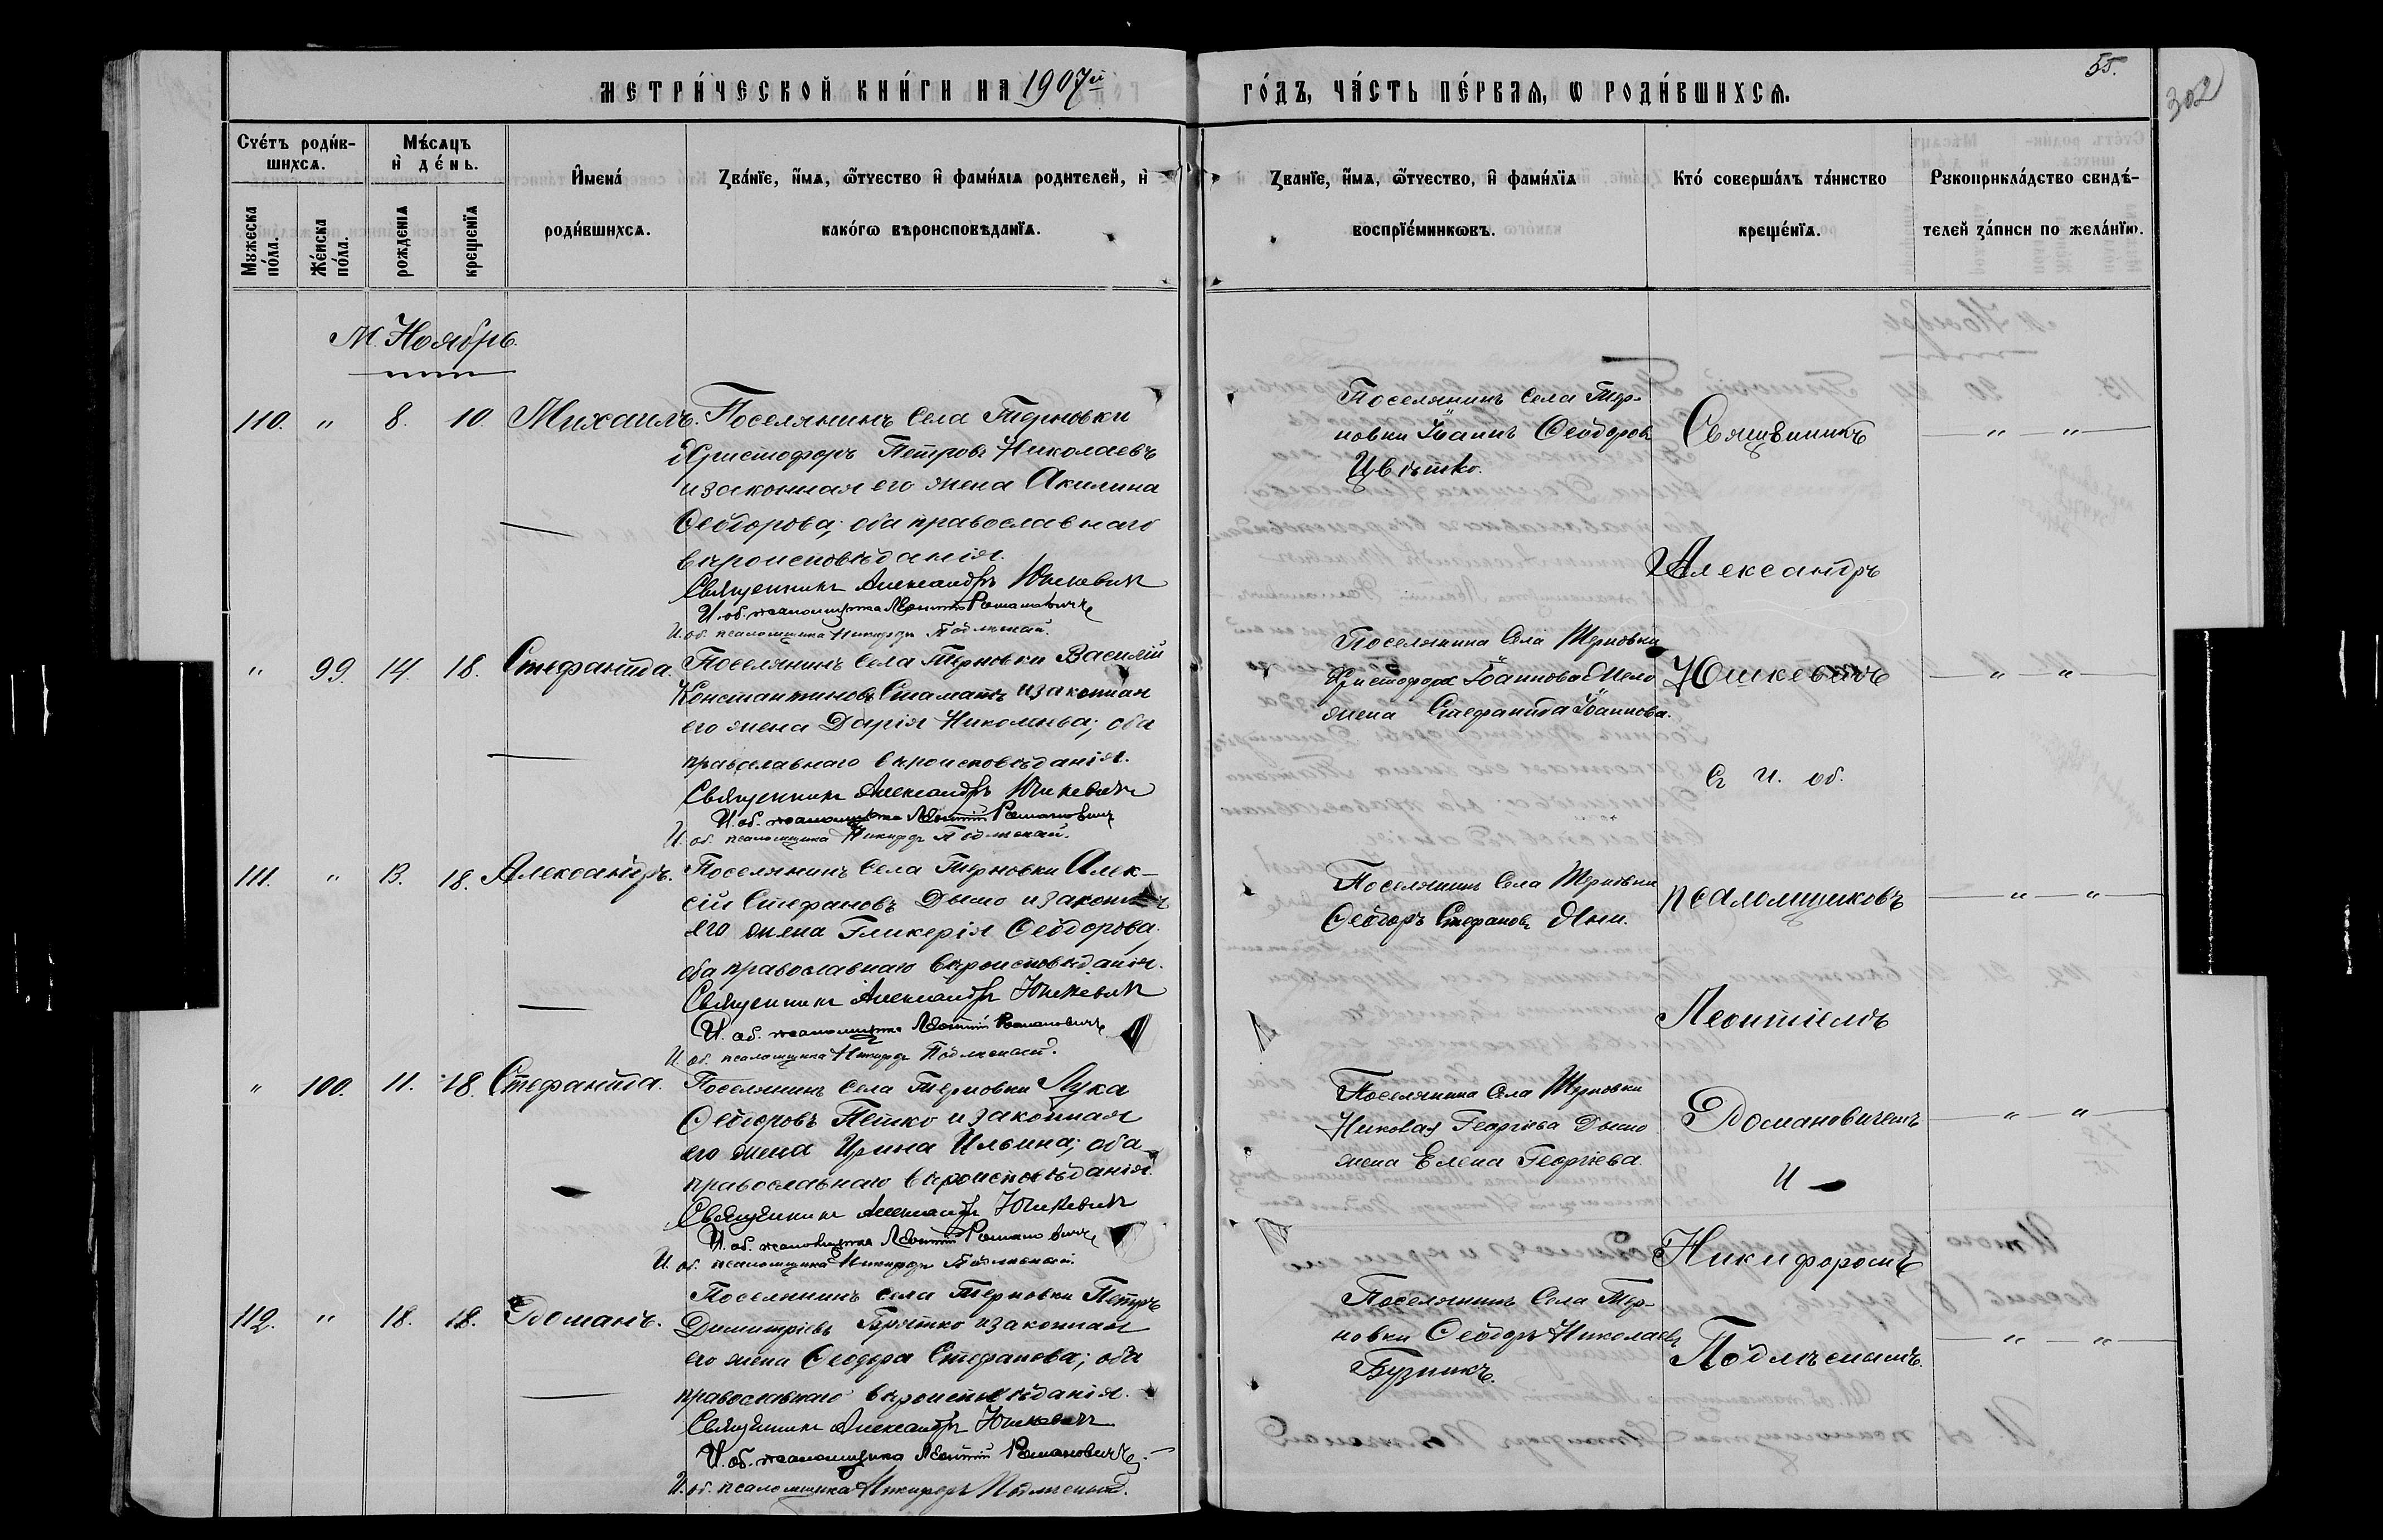 МЕТРИ́ЧЕСКОЙ КНИ́ГИ НА 1907й
ГО́ДЪ, ЧА́СТЬ ПЕ́РВАѦ, Ѡ РОДИ́ВШИХСѦ.
55.
302
Сче́тъ роди́в-
шихсѧ.
Мꙋжеска
по́ла.
Же́нска
по́ла.
Мѣ́сѧцъ
и҆ де́нь.
рожденїѧ
крещенїѧ
И҆мена́
роди́вшихсѧ.
Зва́нїе, и҆́мѧ, ѻ҆́тчество и҆ фами́лїѧ родителей, и҆
како́гѡ вѣроисповѣданїѧ.
Званїе, и҆́мѧ, ѻ҆́тчество, и҆ фами́лїѧ
воспрїе́мникѡвъ.
Кто́ соверша́лъ та́инство
креще́нїѧ.
Рꙋкоприкла́дство свидѣ́-
телей за́писи по жела́нїю.
М. Ноябрь.
110. " 8. 10 Михаилъ.
Поселянинъ села Терновки
Христофоръ Петровъ Николаевъ
и законная его жена Акилина
Ѳеодорова; оба православнаго
вѣроисповѣданія.
Священникъ Александръ Юшкевичъ
И. об. псаломщика Леонтій Романовичъ
И. об. псаломщика Никифоръ Подлѣсный.
Поселянинъ села Тер-
новки Іоаннъ Ѳеодоровъ
Цвѣтко.
" 99. 14. 18. Стефанида.
Поселянинъ села Терновки Василій
Константиновъ Стаматъ и законная
его жена Дарія Николаева; оба
православнаго вѣроисповѣданія.
Священникъ Александръ Юшкевичъ
И. об. псаломщика Леонтій Романовичъ
И. об. псаломщика Никифоръ Подлѣсный.
Поселянина села Терновки
Христофора Іоаннова
жена Стефанида Іоаннова.
111. " 13. 18. Александръ.
Поселянинъ села Терновки Алек-
сій Стефановъ Дымо и законная
его жена Гликерія Ѳеодорова;
оба православнаго вѣроисповѣданія.
Священникъ Александръ Юшкевичъ
И. об. псаломщика Леонтій Романовичъ
И. об. псаломщика Никифоръ Подлѣсный.
Поселянинъ села Терновки
Ѳеодоръ Стефановъ Яни.
" 100. 11. 18. Стефанида.
Поселянинъ села Терновки Лука
Ѳеодоровъ Петко и законная
его жена Ирина Ильина; оба
православнаго вѣроисповѣданія.
Священникъ Александръ Юшкевичъ
И. об. псаломщика Леонтій Романовичъ
И. об. псаломщика Никифоръ Подлѣсный.
Поселянина села Терновки
Николая Георгіева Дымо
жена Елена Георгіева.
112. " 18. 18. Романъ.
Поселянинъ села Терновки Петръ
Димитріевъ Братко и законная
его жена Ѳеодора Стефанова; оба
православнаго вѣроисповѣданія.
Священникъ Александръ Юшкевичъ
И. об. псаломщика Леонтій Романовичъ.
И. об. псаломщика Никифоръ Подлѣсный.
Поселянинъ села Тер-
новки Ѳеодоръ Николаевъ
Бузникъ.
Священникъ
Александръ
Юшкевичъ
съ и. об.
псаломщиковъ
Леонтіемъ
Романовичемъ
и
Никифоромъ
Подлѣснымъ.
— " — " —
— " — " —
— " — " —
— " — " —
— " — " —